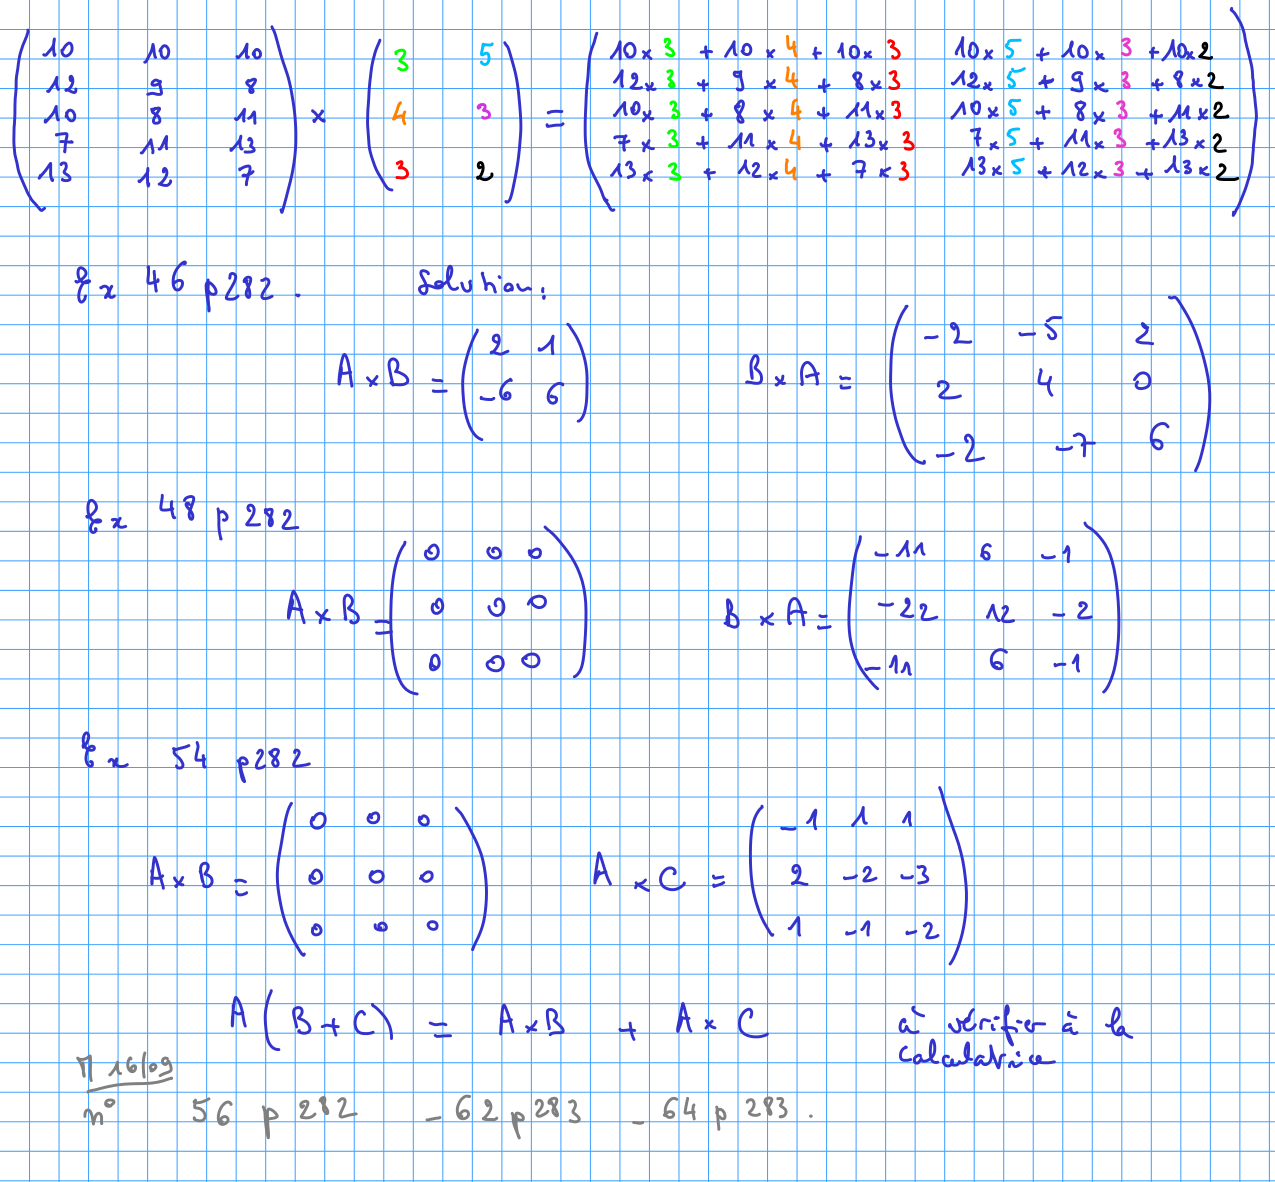 10 10 10 3 5 10×3 + 10×4 + 10×3 10×5 + 10×3 + 10×2
12 9 8 12×3 + 9×4 + 8×3 12×5 + 9×3 + 8×2
10 8 11 × 4 3 = 10×3 + 8×4 + 11×3 10×5 + 8×3 + 11×2
7 11 13 7×3 + 11×4 + 13×3 7×5 + 11×3 + 13×2
13 12 7 3 2 13×3 + 12×4 + 7×3 13×5 + 12×3 + 13×2
Ex 46 p282. Solution:
A×B = (2 1
-6 6)
B×A = (-2 -5 2
2 4 0
-2 -7 6)
Ex 48 p 282
A×B = (0 0 0
0 0 0
0 0 0)
B×A = (-11 6 -1
-22 12 -2
-11 6 -1)
Ex 54 p282
A×B = (0 0 0
0 0 0
0 0 0)
A×C = (-1 1 1
2 -2 -3
1 -1 -2)
A(B+C) = A×B + A×C à vérifier à la
calculatrice
M 16/09
n° 56 p 282 - 62 p 283 - 64 p 283.